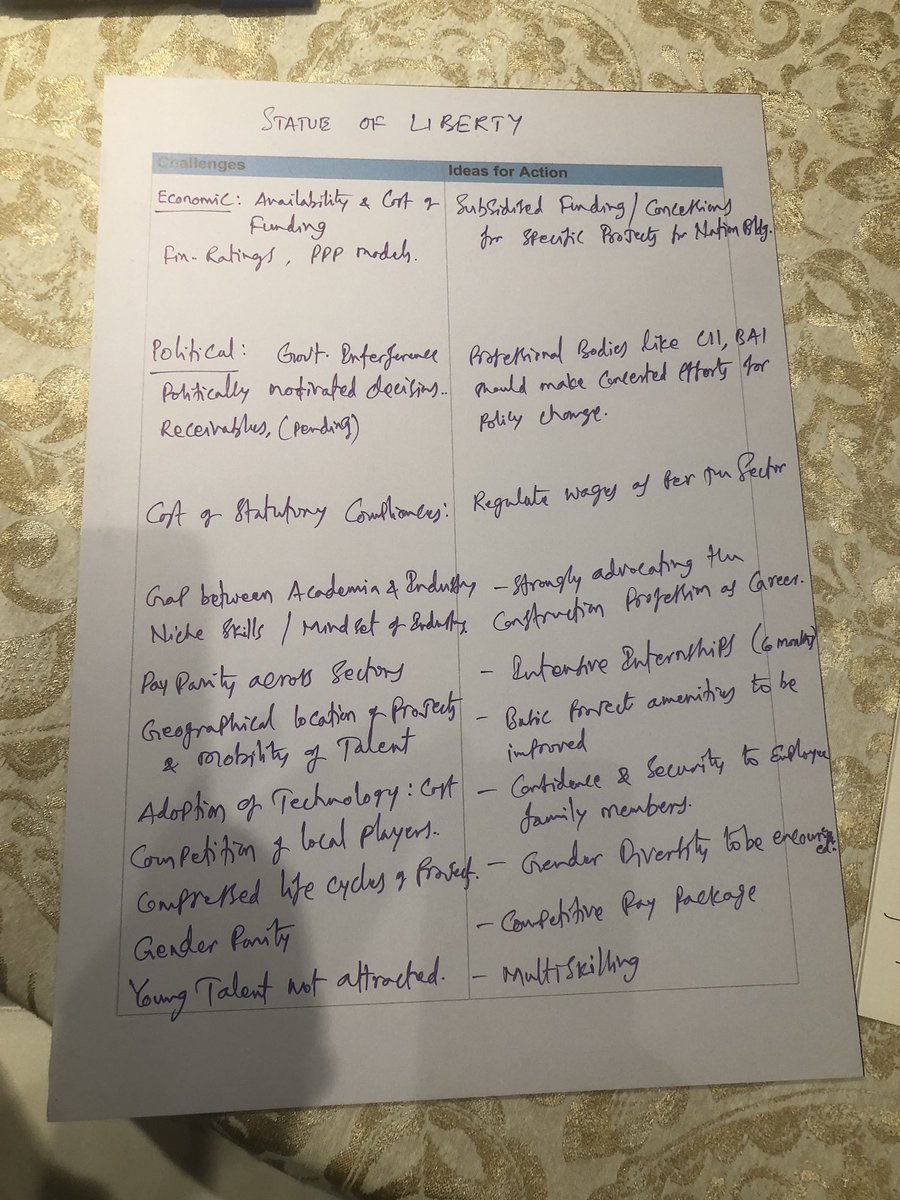 STATUE OF LIBERTY
Challenges
Economic: Availability & Cost of
Funding
Fin. Ratings, PPP models.
Political: Govt. Interference
Politically motivated decisions..
Receivables, (pending)
Cost of Statutory Compliances:
Gap between Academia & Industry
Niche Skills / Mindset of Industry.
Pay Parity across Sectors
Geographical location of Projects
& Mobility of Talent
Adoption of Technology: Cost
Competition of local players..
Compressed life cycles of Project.
Gender Parity
Young Talent not attracted.
Ideas for Action
Subsidised Funding / Concessions
for specific Projects for Nation Bldg.
Professional Bodies like CII, BAI
should make concerted efforts for
Policy change.
Regulate wages as per the Sector
- Strongly advocating the
Construction Profession as Career.
- Intensive Internships (6 months)
- Basic Project amenities to be
improved
- Confidence & Security to Employee
family members.
- Gender Diversity to be encourag
ed.
- Competitive Pay Package
- Multiskilling